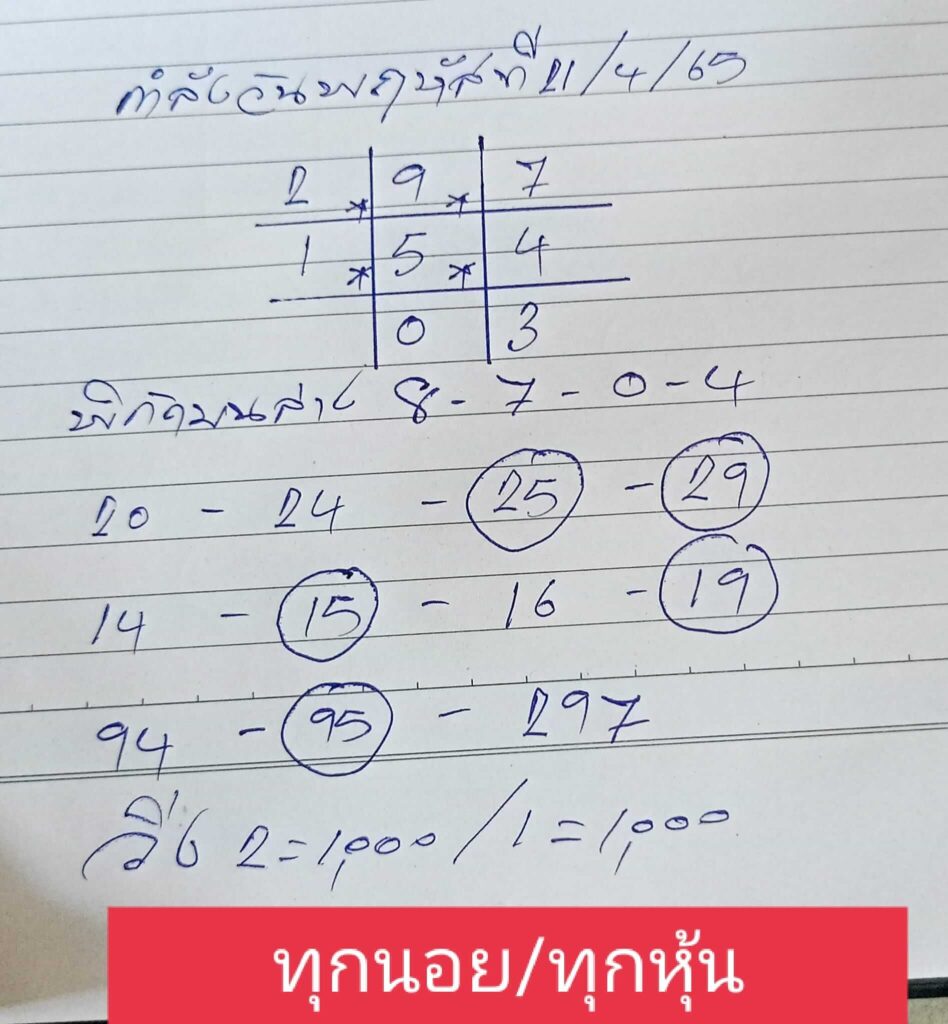 กำลังวันพฤหัสที่ 21/4/65
2 * 9 * 7
1 * 5 * 4
0 3
พิกัดบนล่าง 8-7-0-4
20 - 24 - 25 - 29
14 - 15 - 16 - 19
94 - 95 - 297
วิ่ง 2=1,000/1=1,000
ทุกนอย/ทุกหุ้น